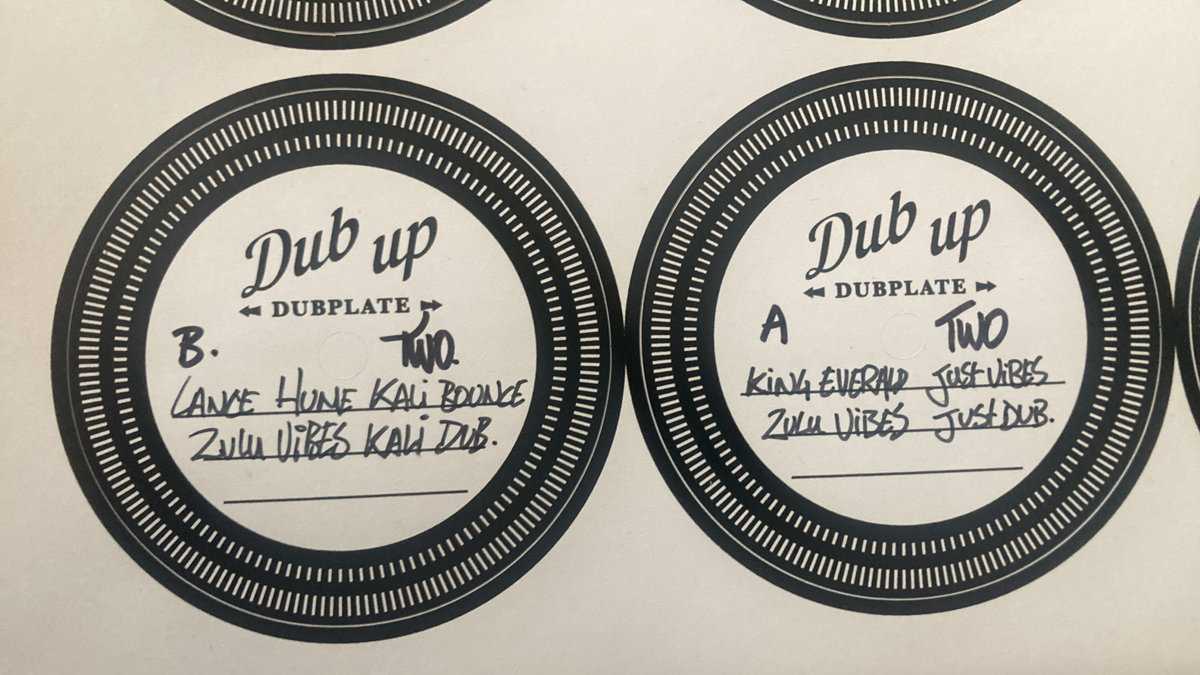 Dub up
DUBPLATE
B. TWO.
LANCE HUNE KALi BOUNCE
ZULU ViBES KALi DUB.
Dub up
DUBPLATE
A TWO
KiNG EVERALD JUST ViBES
ZULU ViBES JUST DUB.